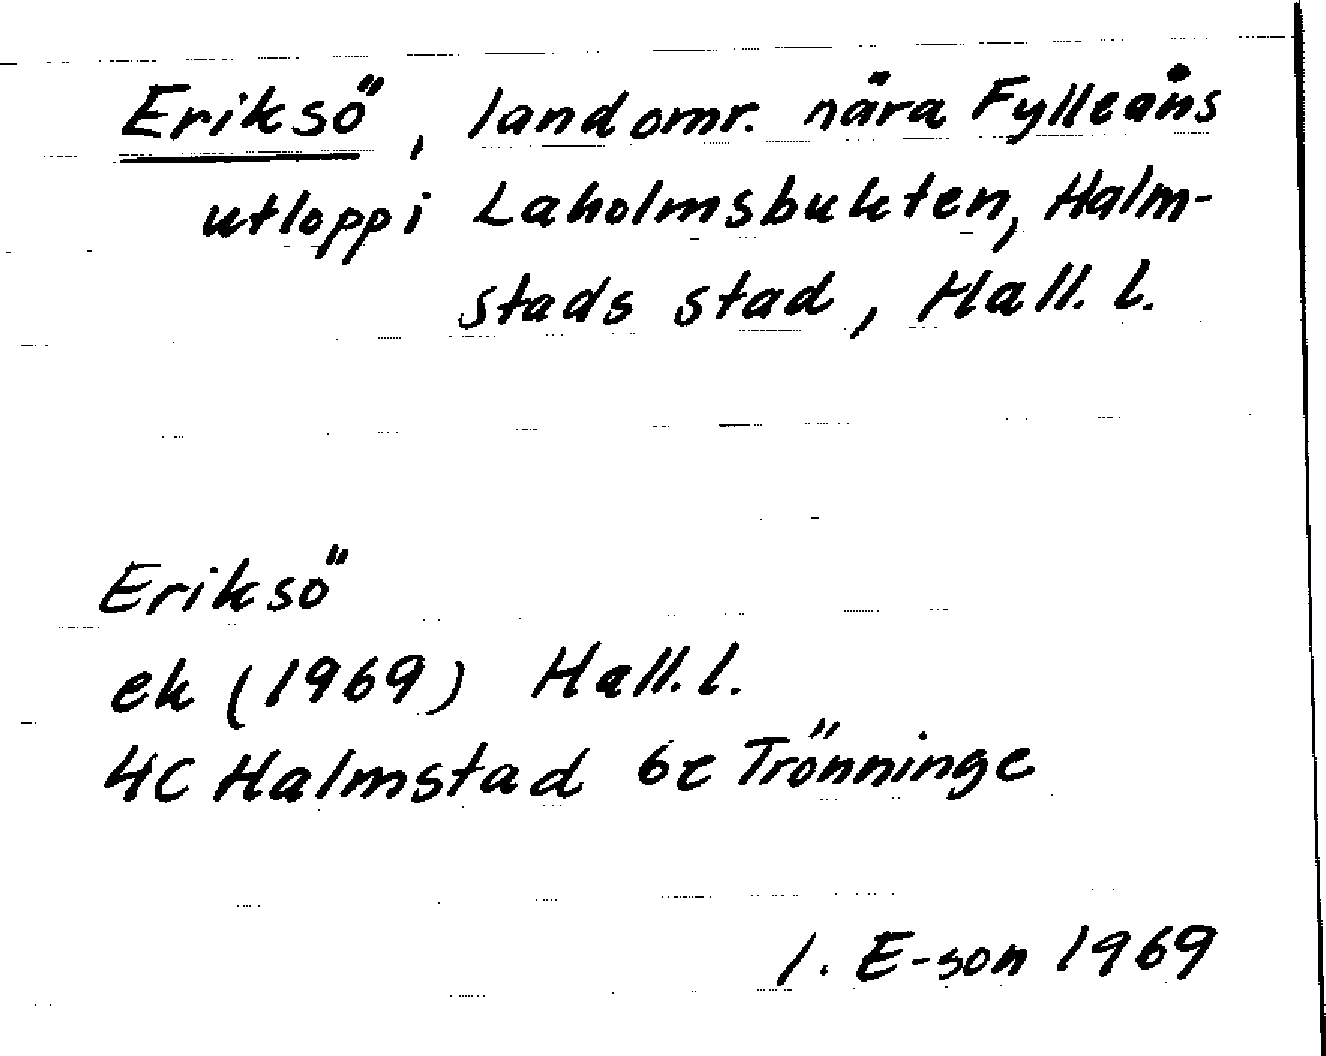 Eriksö, landomr. nära Fylleåns
utlopp i Laholmsbukten, Halm-
stads stad, Hall. l.
Eriksö
ek (1969) Hall. l.
4C Halmstad 6c Trönninge
I. E-son 1969